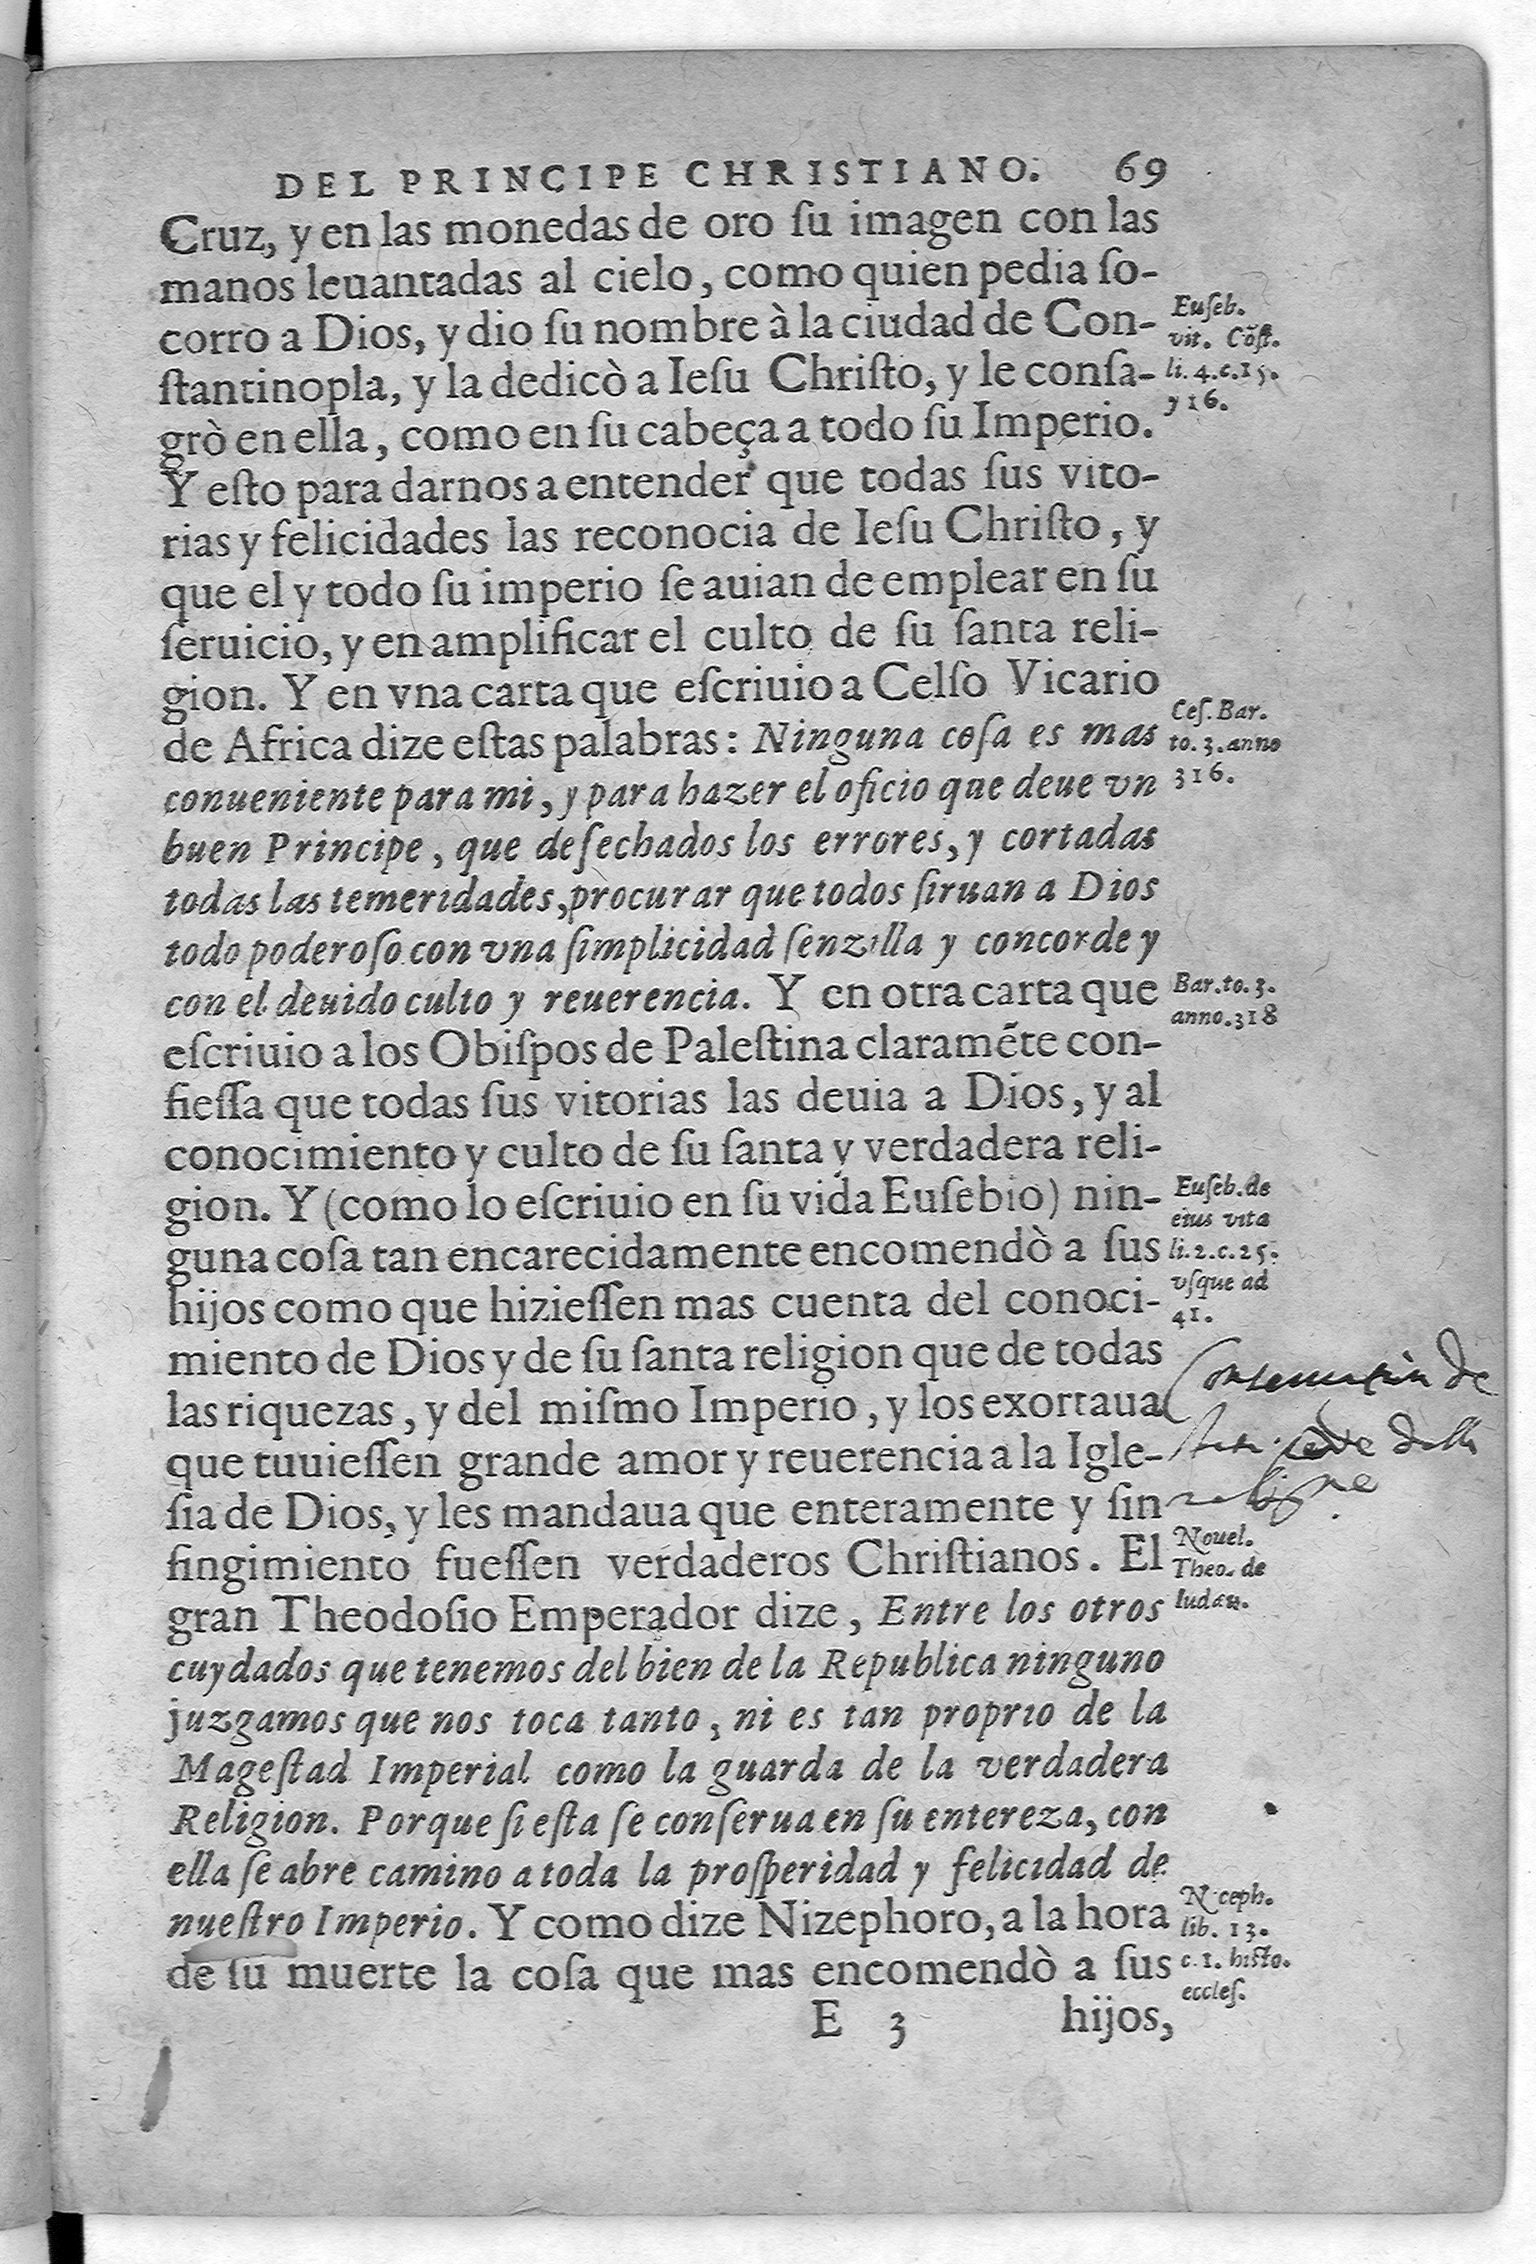 DEL PRINCIPE CHRISTIANO. 69
Cruz, y en las monedas de oro ſu imagen con las
manos leuantadas al cielo, como quien pedia ſo-
corro a Dios, y dio ſu nombre à la ciudad de Con-
ſtantinopla, y la dedicò a Ieſu Chriſto, y le conſa-
grò en ella, como en ſu cabeça a todo ſu Imperio.
Y eſto para darnos a entender que todas ſus vito-
rias y felicidades las reconocia de Ieſu Chriſto, y
que el y todo ſu imperio ſe auian de emplear en ſu
ſeruicio, y en amplificar el culto de ſu ſanta reli-
gion. Y en vna carta que eſcriuio a Celſo Vicario
de Africa dize eſtas palabras: Ninguna coſa es mas
conueniente para mi, y para hazer el oficio que deue vn
buen Principe, que deſechados los errores, y cortadas
todas las temeridades, procurar que todos ſiruan a Dios
todo poderoſo con vna ſimplicidad ſenzilla y concorde y
con el deuido culto y reuerencia. Y en otra carta que
eſcriuio a los Obiſpos de Paleſtina claramẽte con-
fieſſa que todas ſus vitorias las deuia a Dios, y al
conocimiento y culto de ſu ſanta y verdadera reli-
gion. Y (como lo eſcriuio en ſu vida Euſebio) nin-
guna coſa tan encarecidamente encomendò a ſus
hijos como que hizieſſen mas cuenta del conoci-
miento de Dios y de ſu ſanta religion que de todas
las riquezas, y del miſmo Imperio, y los exortaua
que tuuieſſen grande amor y reuerencia a la Igle-
ſia de Dios, y les mandaua que enteramente y ſin
fingimiento fueſſen verdaderos Chriſtianos. El
gran Theodoſio Emperador dize, Entre los otros
cuydados que tenemos del bien de la Republica ninguno
juzgamos que nos toca tanto, ni es tan proprio de la
Mageſtad Imperial como la guarda de la verdadera
Religion. Porque ſi eſta ſe conſerua en ſu entereza, con
ella ſe abre camino a toda la proſperidad y felicidad de
nueſtro Imperio. Y como dize Nizephoro, a la hora
de ſu muerte la coſa que mas encomendò a ſus
E 3 hijos,
Euſeb.
vit. Cõſt.
li. 4. c. 15.
y 16.
Ceſ. Bar.
to. 3. anno
316.
Bar. to. 3.
anno. 318
Euſeb. de
eius vita
li. 2. c. 25.
vſque ad
41.
de
Nouel.
Theo. de
Iudæis.
Niceph.
lib. 13.
c. 1. hiſto.
eccleſ.